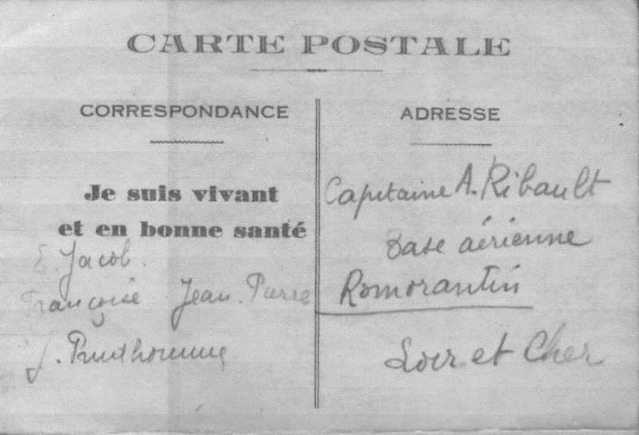 CARTE POSTALE
CORRESPONDANCE
Je suis vivant
et en bonne santé
E. Jacob.
Françoise Jean. Pierre
J. Prudhomme
ADRESSE
Capitaine A. Ribault
Base aérienne
Romorantin
Loir et Cher